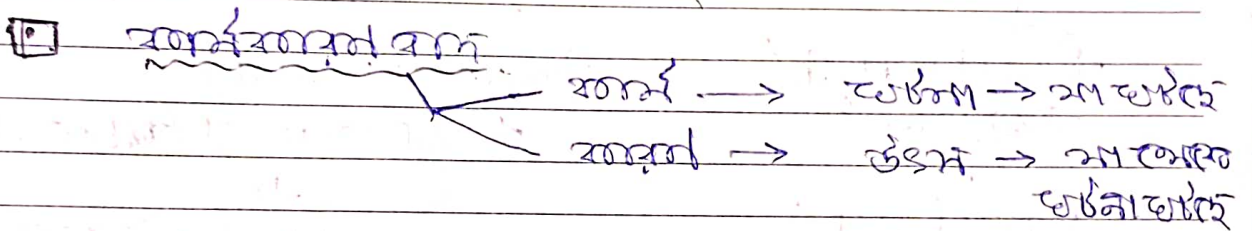 কার্যকারণ বাদ
কার্য → ঘটনা → যা ঘটছে
কারণ → উৎস → যা থেকে
ঘটনা ঘটছে